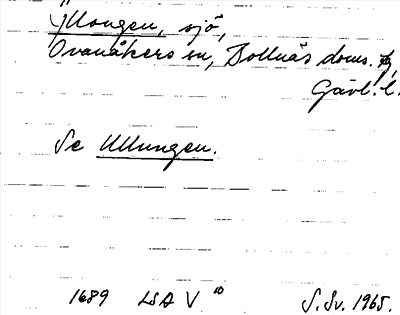 Yllongen, sjö,
Ovanåkers sn, Bollnäs doms.
Gävl. l.
Se Ullungen.
1689 LSA V 10 S. Sv. 1965.